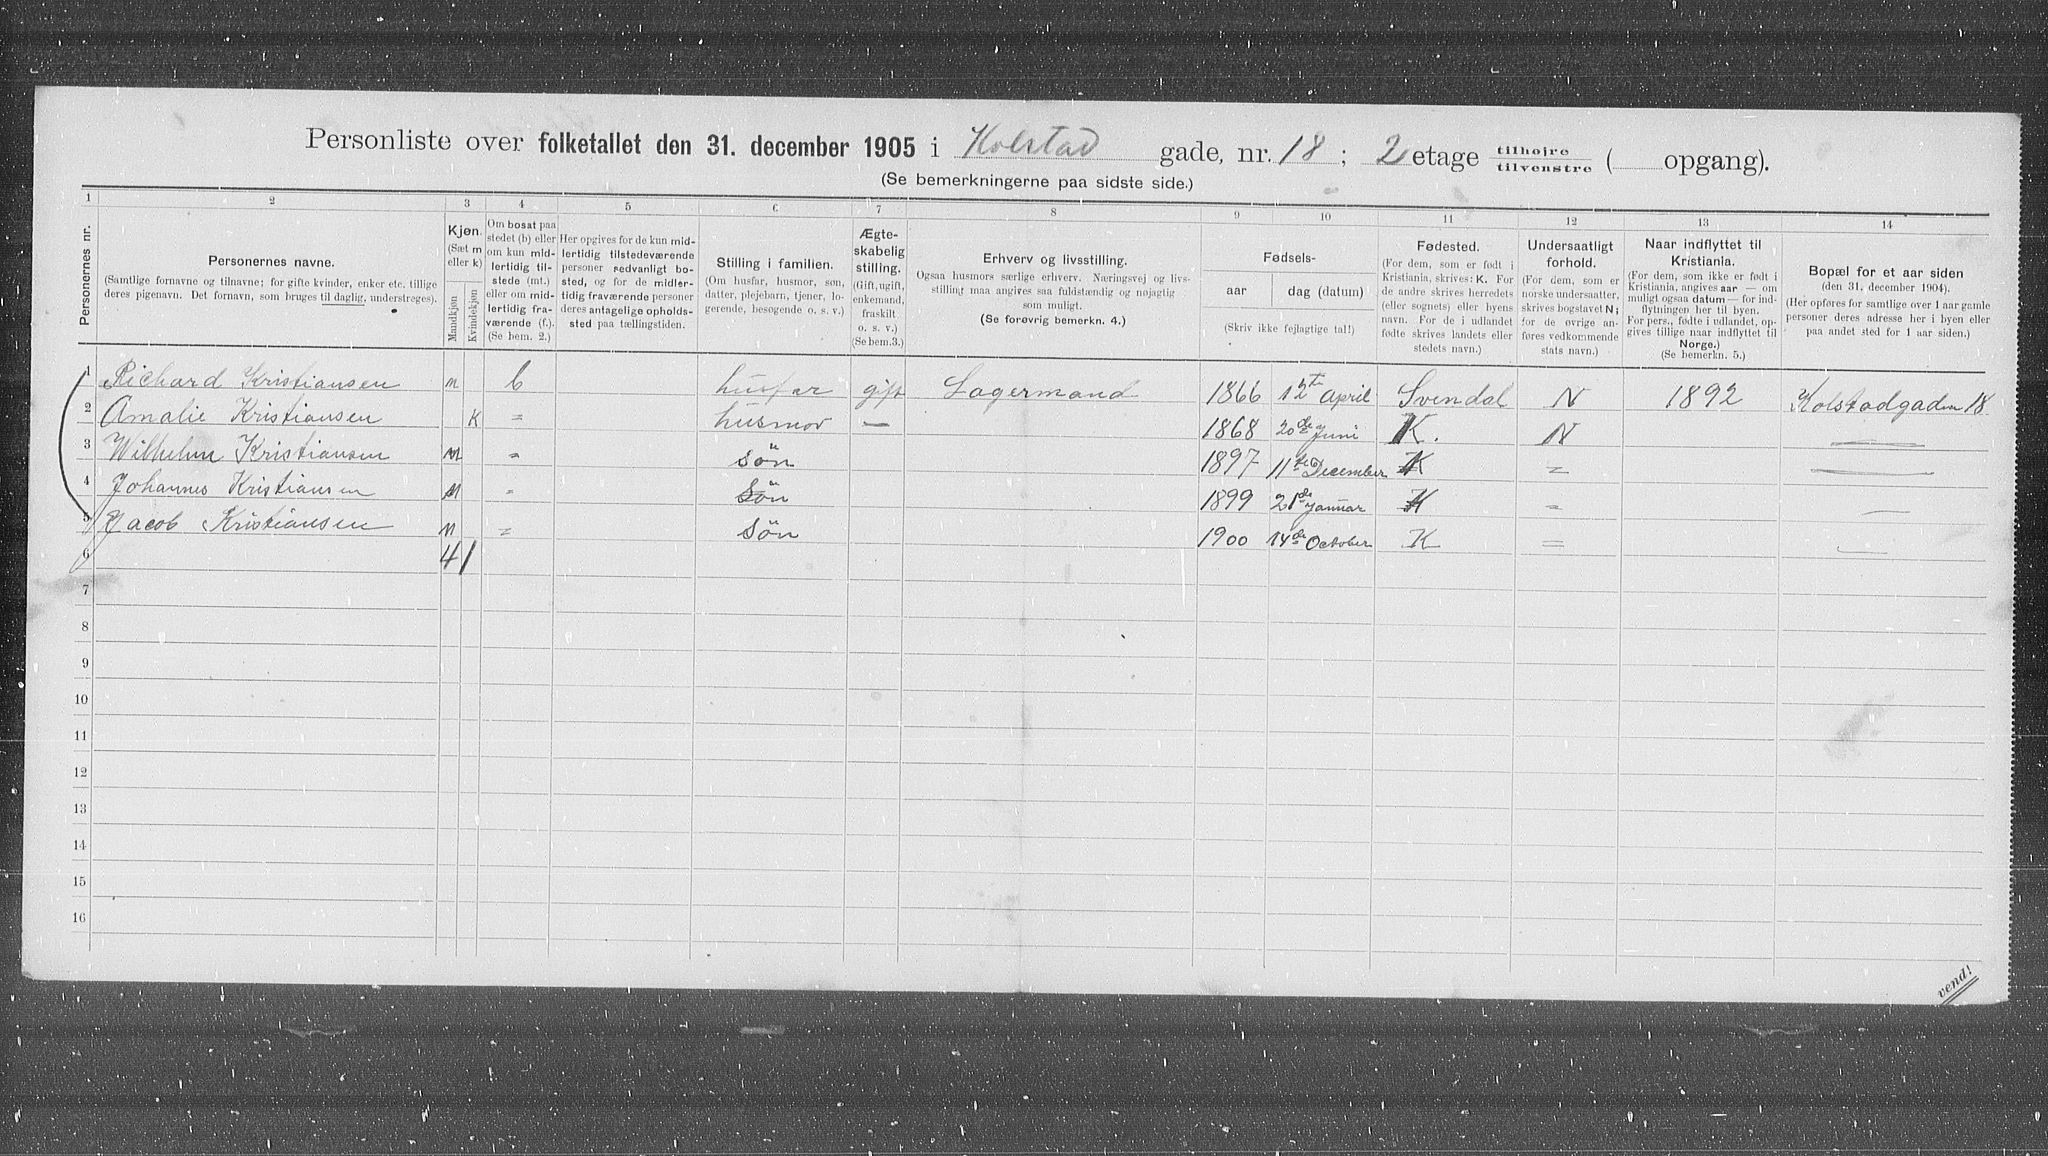 Personliste over folketallet den 31. december 1905 i Kolstad gade, nr. 18 ; 2 etage tilhøjre / tilvenstre ( opgang).
(Se bemerkningerne paa sidste side.)
1 2 3 4 5 6 7 8 9 10 11 12 13 14
Personernes nr.
Personernes navne.
(Samtlige fornavne og tilnavne; for gifte kvinder, enker etc. tillige
deres pigenavn. Det fornavn, som bruges til daglig, understreges).
Kjøn.
(Sæt m
eller k)
Mandkjøn
Kvindekjøn
Om bosat paa
stedet (b) eller
om kun mid-
lertidig til-
stede (mt.)
eller om mid-
lertidig fra-
værende (f.).
(Se bem. 2.)
Her opgives for de kun mid-
lertidig tilstedeværende
personer sedvanligt bo-
sted, og for de midler-
tidig fraværende personer
deres antagelige opholds-
sted paa tællingstiden.
Stilling i familien.
(Om husfar, husmor, søn,
datter, plejebarn, tjener, lo-
gerende, besøgende o. s. v.)
Ægte-
skabelig
stilling.
(Gift, ugift,
enkemand,
fraskilt
o. s. v.)
(Se bem.3.)
Erhverv og livsstilling.
Ogsaa husmors særlige erhverv. Næringsvej og livs-
stilling maa angives saa fuldstændig og nøjagtig
som muligt.
(Se forøvrig bemerkn. 4.)
Fødsels-
aar
dag (datum)
(Skriv ikke fejlagtige tal!)
Fødested.
(For dem, som er født i
Kristiania, skrives: K. For
de andre skrives herredets
(eller sognets) eller byens
navn. For de i udlandet
fødte skrives landets eller
stedets navn.)
Undersaatligt
forhold.
(For dem, som er
norske undersaatter,
skrives bogstavet N;
for de øvrige an-
føres vedkommende
stats navn.)
Naar indflyttet til
Kristiania.
(For dem, som ikke er født i
Kristiania, angives aar — om
muligt ogsaa datum — for ind-
flytningen her til byen.
For pers., fødte i udlandet, op-
gives tillige naar indflyttet til
Norge.)
(Se bemerkn. 5.)
Bopæl for et aar siden
(den 31. december 1904).
(Her opføres for samtlige over 1 aar gamle
personer deres adresse her i byen eller
paa andet sted for 1 aar siden.)
1 Richard Kristiansen m b husfar gift Lagermand 1866 12te April Svendal N 1892 Kolstadgaden 18
2 Amalie Kristiansen K " husmor — 1868 20de Juni K. N —
3 Wilhelm Kristiansen M " sön 1897 11te December K " —
4 Johannes Kristiansen M " sön 1899 21de Januar K " —
5 Jacob Kristiansen M " sön 1900 14de October K " —
6 4 1
7
8
9
10
11
12
13
14
15
16
vend!